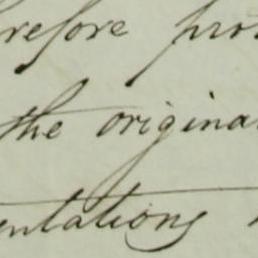 refore pro
the origina
entations